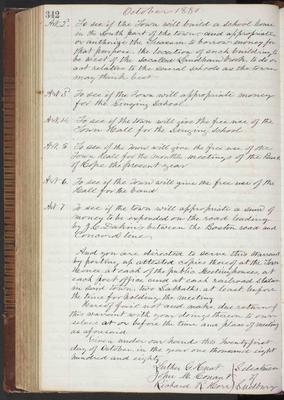 342
October 1880
Art 2. To see if the Town will build a school house
in the South part of the town and appropriate
or authorize the Treasurer to borrow money for
that purpose. the location of such building to
be West of the so called Lindham brook. to do or
act relative to the several schools as the town
may think best
Art 3. To see if the Town will appropriate money
for the Singing School
Art. 4. To see if the town will give the free use of the
Town Hall for the Singing School
Art. 5 To see if the Town will give the free use of the
Town Hall for the monthly meetings of the Band
of Hope the present year
Art 6. To see if the Town will give the free use of the
Hall for the Band
Art 7 To see if the town will appropriate a sum of
money to be expended on the road leading
by J. C. Dakin's between the Boston road and
Concord line
And you are directed to serve this Warrant
by posting up attested copies thereof at the Town
House, at each of the public Meetinghouses, at
each post office and at each railroad station
in said town, two Sabbaths at least before
the time for holding the meeting
Hereof fail not and make due return of
this warrant with your doings thereon to our-
selves at or before the time and place of meeting
as aforesaid.
Given under our hands this Twenty first
day of October in the year one thousand eight
hundred and eighty
Luther G. Hunt
John H. Conant
Richard R. Horr
Selectmen
of
Sudbury